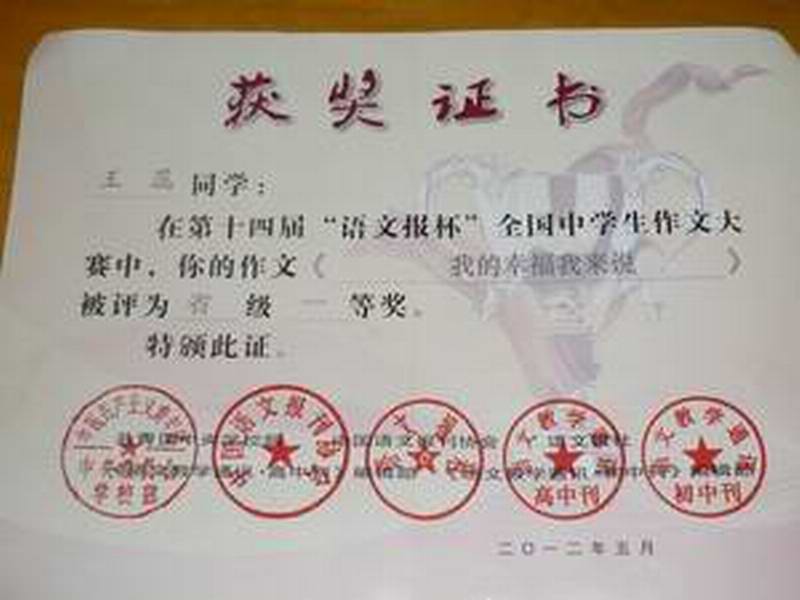 获奖证书
王蕊同学：
在第十四届“语文报杯”全国中学生作文大
赛中，你的作文《我的幸福我来说》
被评为省级一等奖。
特颁此证。
中国语文报刊协会 语文报社
高中刊
初中刊
二〇一二年五月